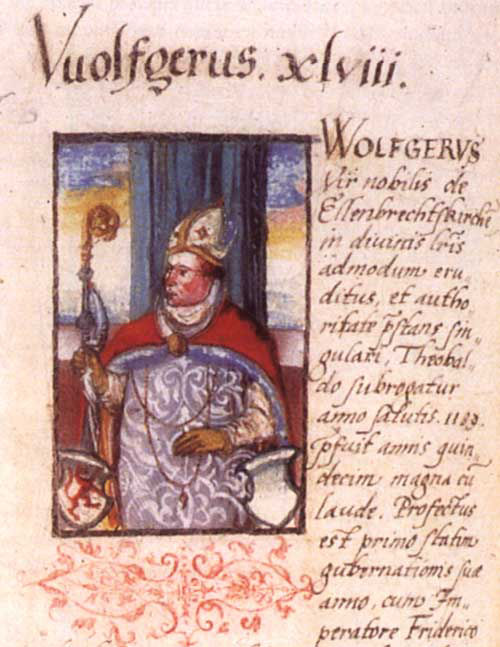 Vuolfgerus. xlviii.
WOLFGERVS
Vir nobilis de
Ellenbrechtskirchē
in divinis lr̄is
admodum eru-
ditus, et autho
ritate p̄stans sin-
gulari, Theobal-
do subrogatur
anno salutis. 1189.
p̄fuit annis quin-
decim magna cū
laude. Profectus
est primo statim
gubernationis suæ
anno, cum Im-
peratore Friderico